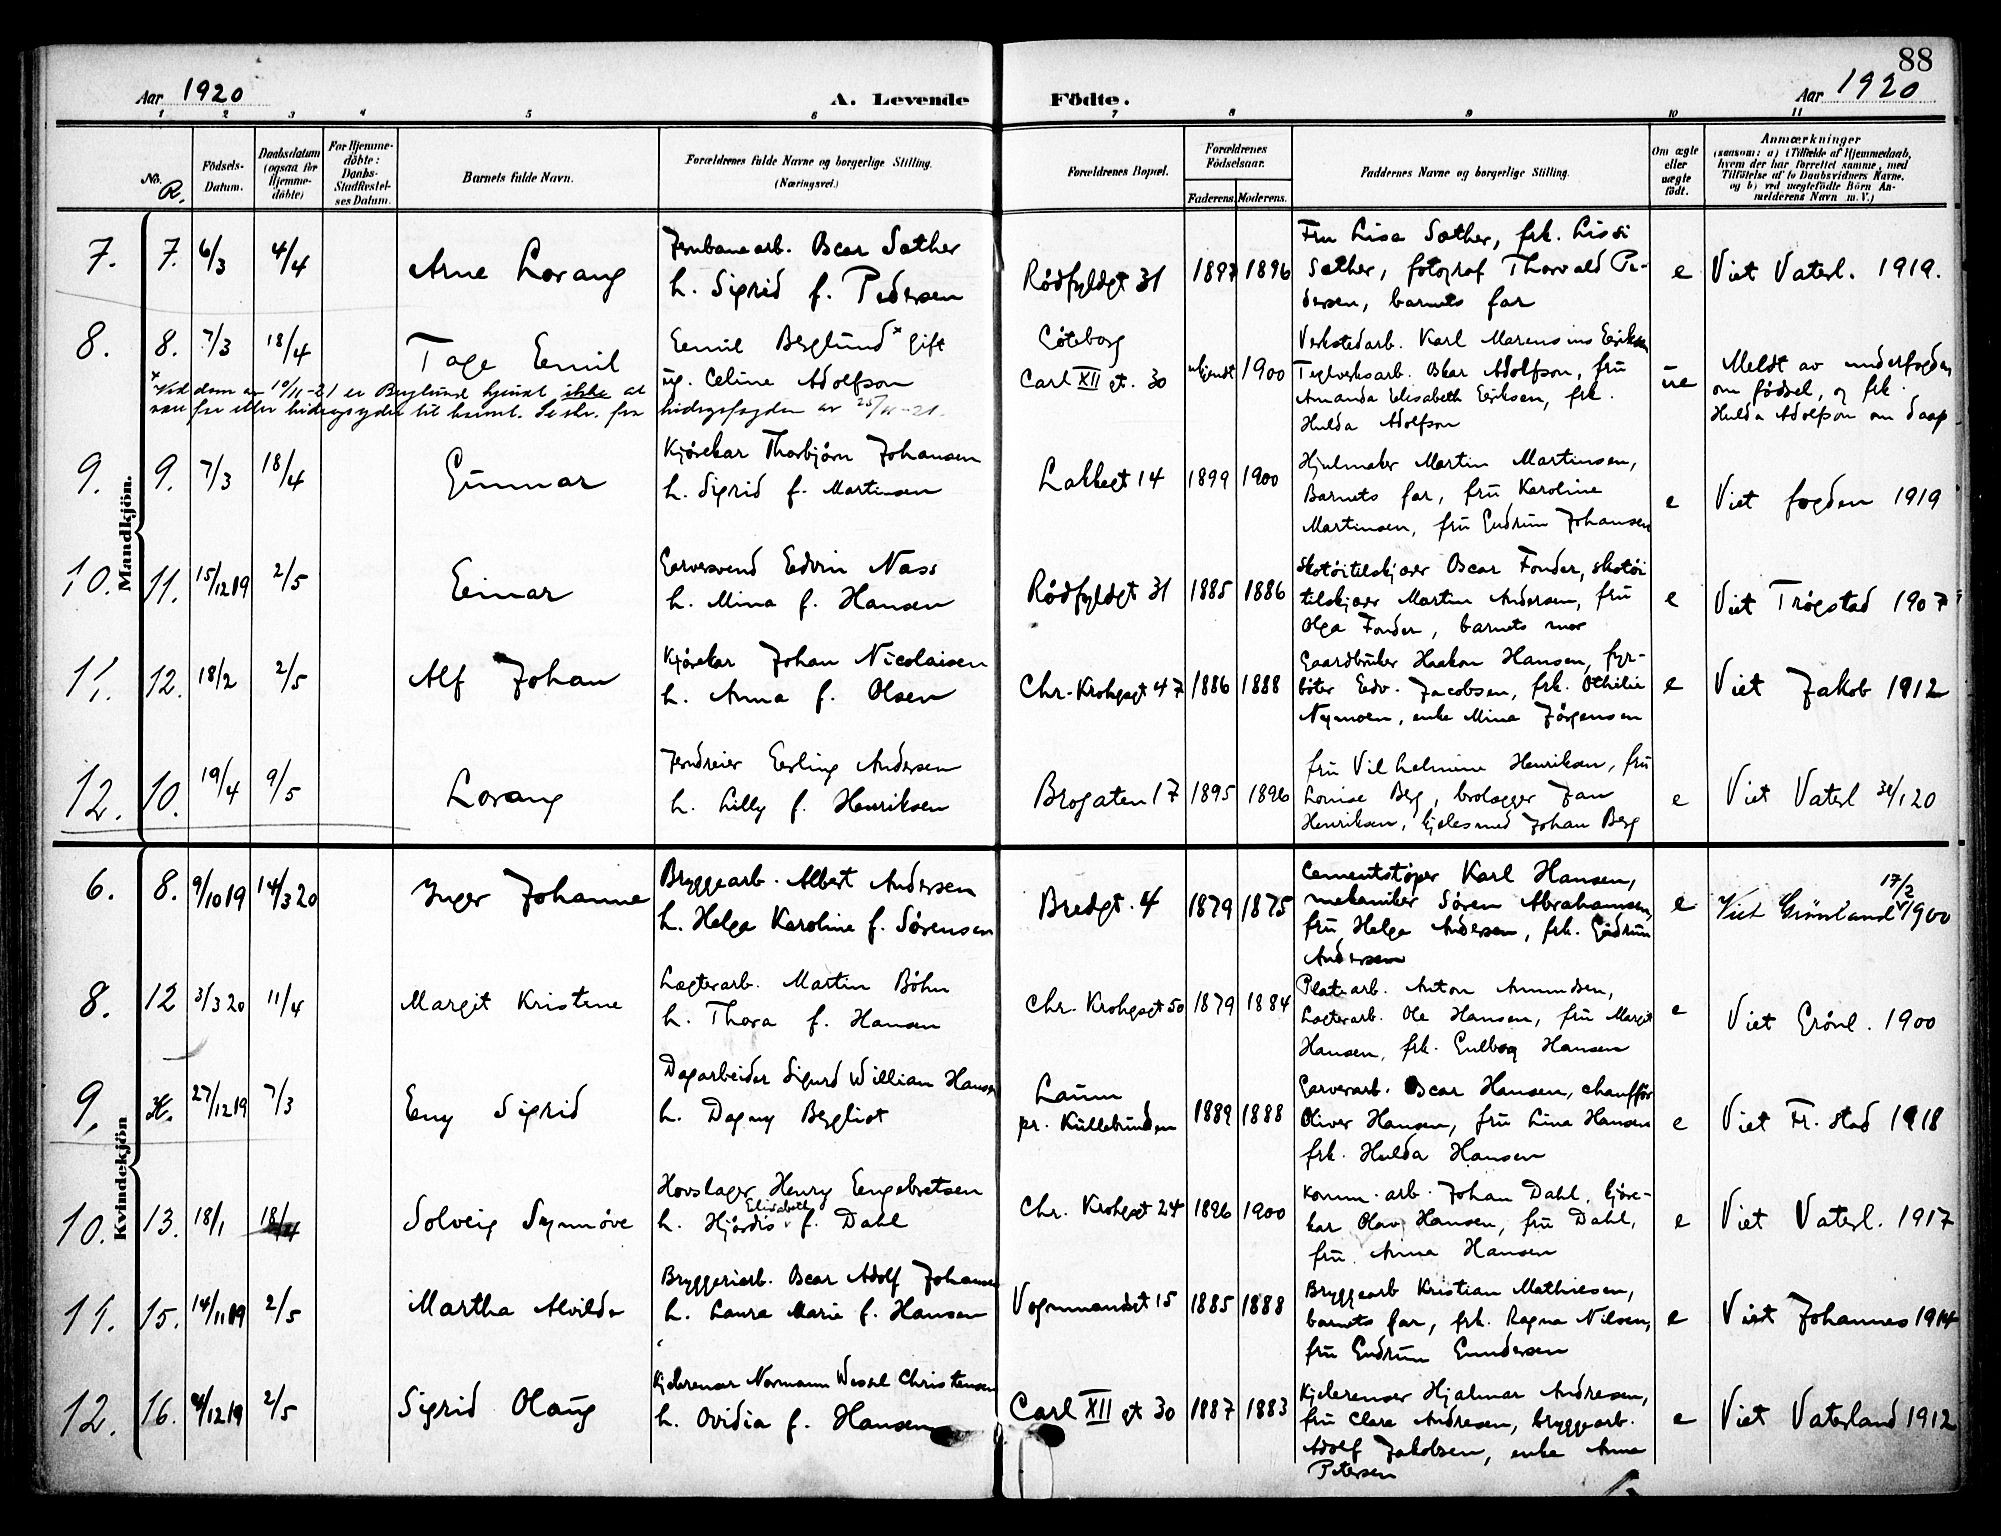 88
Aar 1920
A. Levende Födte.
Aar 1920
1 2 3 4 5 6 7 8 9 10 11
No. R.
Födsels-Datum.
Daabsdatum (ogsaa for Hjemme-döbte)
For Hjemme-döbte: Daabs-Stadfæstel-ses Datum.
Barnets fulde Navn.
Forældrenes fulde Navne og borgerlige Stilling. (Næringsvei.)
Forældrenes Bopæl.
Forældrenes Födselsaar.
Faderens. Moderens.
Faddernes Navne og borgerlige Stilling.
Om ægte eller uægte födt.
Anmærkninger
(saasom: a) i Tilfælde af Hjemmedaab, hvem der har forrettet samme, med Tilföielse af to Daabsvidners Navne. og b) ved uægtefödte Börn An-melderens Navn m. V.)
Mandkjön.
7. 7. 6/3 4/4 Arne Lorang
Jernbanearb. Oscar Sæther
h. Sigrid f. Pedersen
Rødfyldgt 31 1897 1896
Fru Lisa Sæther, frk. Lissi
Sæther, fotograf Thorvald Pe-
dersen, barnets far
e Viet Vaterl. 1919.
8. 8. 7/3 18/4 Tage Emil
Emil Berglund x Gift
ug. Celine Adolfson
Göteborg
Carl XII gt. 30 ukjendt 1900
Verkstedarb. Karl Marensius Eriksen
Teglverksarb. Oskar Adolfson, fru
Amanda Elisabeth Eriksen, frk.
Hulda Adolfson
ue Meldt av underfogden
om fødsel, og frk
Hulda Adolfson om daap
x Ved dom av 10/11-21 er Berglund kjendt ikke at
være far eller bidragsyder til barnet. Se skr. fra
bidragsfogden av 25/11-21.
9. 9. 7/3 18/4 Gunnar
Kjørekar Thorbjørn Johansen
h. Sigrid f. Martinsen
Lakkegt 14 1899 1900
Hjulmaker Martin Martinsen,
Barnets far, fru Karoline
Martinsen, fru Gudrun Johansen
e Viet fogden 1919
10. 11. 15/12 19 2/5 Einar
Garversvend Edvin Næss
h. Mina f. Hansen
Rødfyldgt 31 1885 1886
Skotøitilskjærer Oscar Fonder, skotøi
tilskjærer Martin Andersen, fru
Olga Fonder, barnets mor
e Viet Trøgstad 1907
11. 12. 18/2 2/5 Alf Johan
Kjørekar Johan Nicolaisen
h. Anna f. Olsen
Chr. Krohgsgt 47 1886 1888
Gaardbruker Haakon Hansen, fyr-
bøter Edv. Jacobsen, frk. Othilie
Nymoen, enke Mina Jørgensen
e Viet Jakob 1912
12. 10. 19/4 9/5 Lorang
Jerndreier Erling Andersen
h. Lilly f. Henriksen
Brogaten 17 1895 1896
fru Vilhelmine Henriksen, fru
Lovise Berg, brolægger Jan
Henriksen, kjelesmed Johan Berg
e Viet Vaterl 31/1 20
Kvindekjön
6. 8. 9/10 19 14/3 20 Inger Johanne
Bryggearb. Albert Andersen
h. Helga Karoline f. Sørensen
Bredgt. 4 1879 1875
Cementstøper Karl Hansen,
mekaniker Søren Abrahamsen,
fru Helga Andersen, frk. Gudrun
Andersen
e Viet Grønland 17/2 1900
8. 12 3/3 20 11/4 Margit Kristine
Lagterarb. Martin Bøhn
h. Thora f. Hansen
Chr. Krohgsgt 50 1879 1884
Platearb. Anton Amundsen,
Lagterarb. Ole Hansen, fru Margit
Hansen, frk. Gulborg Hansen
e Viet Grønl. 1900
9. 27/12 19 7/3 Eny Sigrid
Dagarbeider Sigurd William Hansen
h. Dagny Bergliot
Laum
pr. Kullebunden 1889 1888
Garverarb. Oscar Hansen, chauffør
Oliver Hansen, fru Lina Hansen
frk. Hulda Hansen
e Viet Fr. stad 1918
10. 13. 18/1 18/4 Solveig Synnøve
Hovslager Henry Engebretsen
h. Hjørdis Elisabeth f. Dahl
Chr. Krohgsgt 24 1896 1900
Komm. arb. Johan Dahl, kjøre-
kar Olav Hansen, fru Dahl,
fru Anna Hansen
e Viet Vaterl. 1917
11. 15. 14/11 19 2/5 Martha Alvilde
Bryggeriarb. Oscar Adolf Johansen
h. Laura Marie f. Hansen
Vognmandsgt 15 1885 1888
Bryggearb Kristian Mathiesen,
barnets far, frk. Ragna Nilsen,
fru Gudrun Gundersen
e Viet Johannes 1914
12. 16. 4/12 19 2/5 Sigrid Olaug
Kjelerenser Normann Wessel Christensen
h. Ovidia f. Hansen
Carl XII gt 30 1887 1883
Kjelerenser Hjalmar Andresen,
fru Clara Andresen, bryggearb.
Adolf Jakobsen, enke Anna
Petersen
e Viet Vaterland 1912